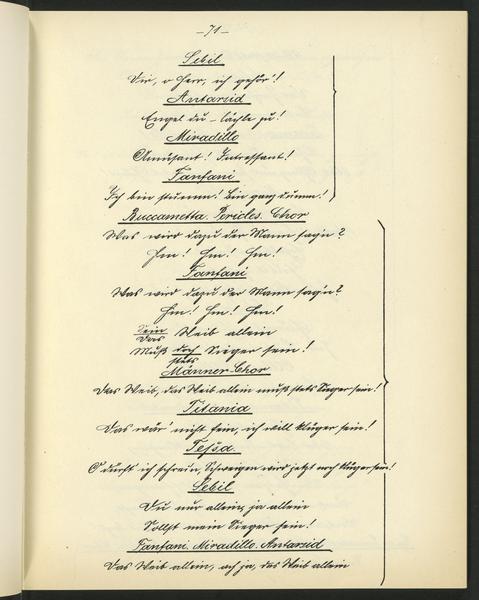 -71-
Sebil
Dir, o Herr, ich gehör'!
Antarsid
Engel du – lächle zu!
Miradillo
Amüsant! Intressant!
Fanfani
Ich bin stumm! Bin ganz dumm!
Buccametta. Pericles. Chor
Was wird dazu der Mann sag'n?
Hm! Hm! Hm!
Fanfani
Was wird dazu der Mann sag'n?
Hm! Hm! Hm!
Sein
Das Weib allein
Muß doch Sieger sein!
stets
Männer-Chor
Das Weib, das Weib allein muß stets Sieger sein!
Titania
Das wär' nicht fein, ich will klüger sein!
Tessa.
O dürft' ich schrein, Schweigen wird jetzt noch klüger sein!
Sebil
Du nur allein, ja allein
Sollst mein Sieger sein!
Fanfani. Miradillo. Antarsid
Das Weib allein, ach ja, das Weib allein